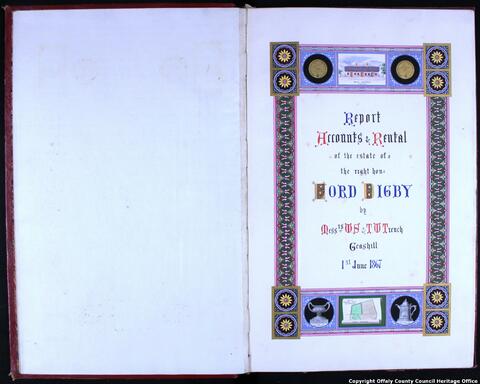 Report
Accounts & Rental
of the estate of
the right hon:
LORD DIGBY
by
Messrs W.S. & T.W. Trench
Geashill
1st June 1867
Copyright Offaly County Council Heritage Office